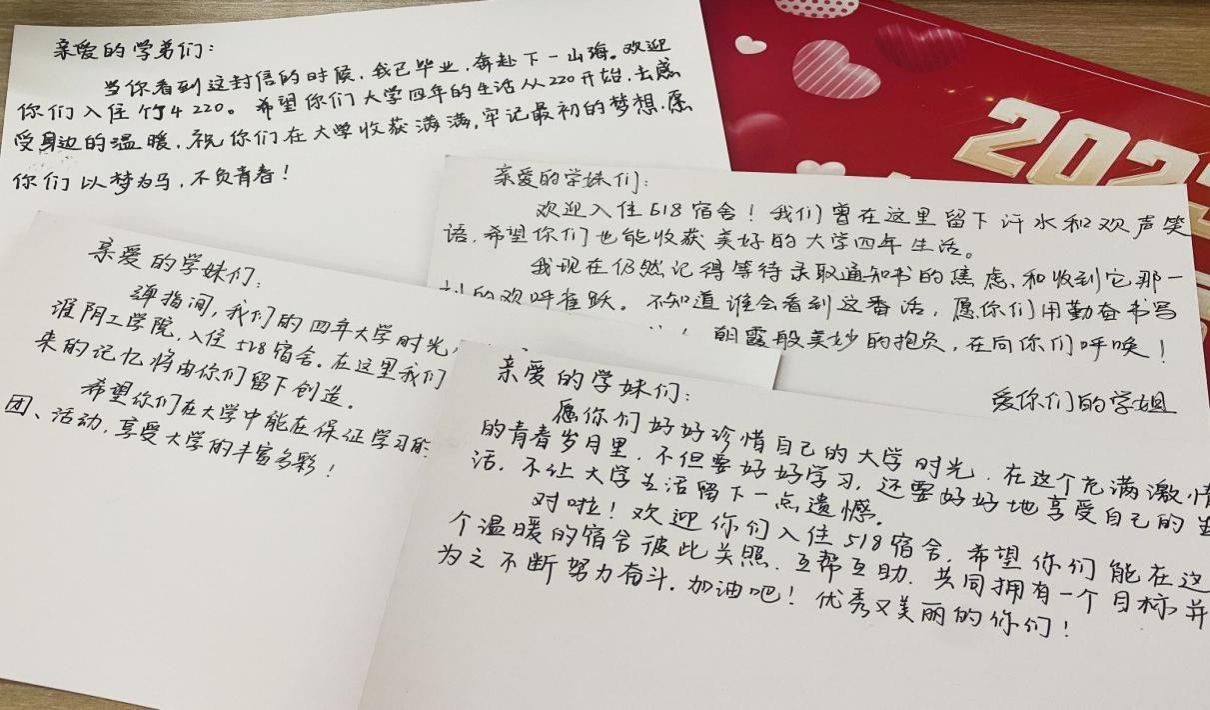 亲爱的学弟们:
当你看到这封信的时候,我已毕业,奔赴下一山海。欢迎
你们入住竹4 220。希望你们大学四年的生活从220开始,去感
受身边的温暖,祝你们在大学收获满满,牢记最初的梦想,愿
你们以梦为马,不负青春!
202
亲爱的学妹们:
欢迎入住518宿舍!我们曾在这里留下汗水和欢声笑
语,希望你们也能收获美好的大学四年生活。
我现在仍然记得等待录取通知书的焦虑、和收到它那一
刻的欢呼雀跃。不知道谁会看到这番话,愿你们用勤奋书写
!朝霞般美妙的抱负,在向你们呼唤!
爱你们的学姐
亲爱的学妹们:
弹指间,我们的四年大学时光,
淮阴工学院,入住518宿舍。在这里我们
来的记忆将由你们留下创造。
希望你们在大学中能在保证学习的
团、活动,享受大学的丰富多彩!
亲爱的学妹们:
愿你们好好珍惜自己的大学时光,在这个充满激情
的青春岁月里,不但要好好学习,还要好好地享受自己的生
活,不让大学生活留下一点遗憾。
对啦!欢迎你们入住518宿舍,希望你们能在这
个温暖的宿舍彼此关照,互帮互助,共同拥有一个目标,并
为之不断努力奋斗,加油吧!优秀又美丽的你们!